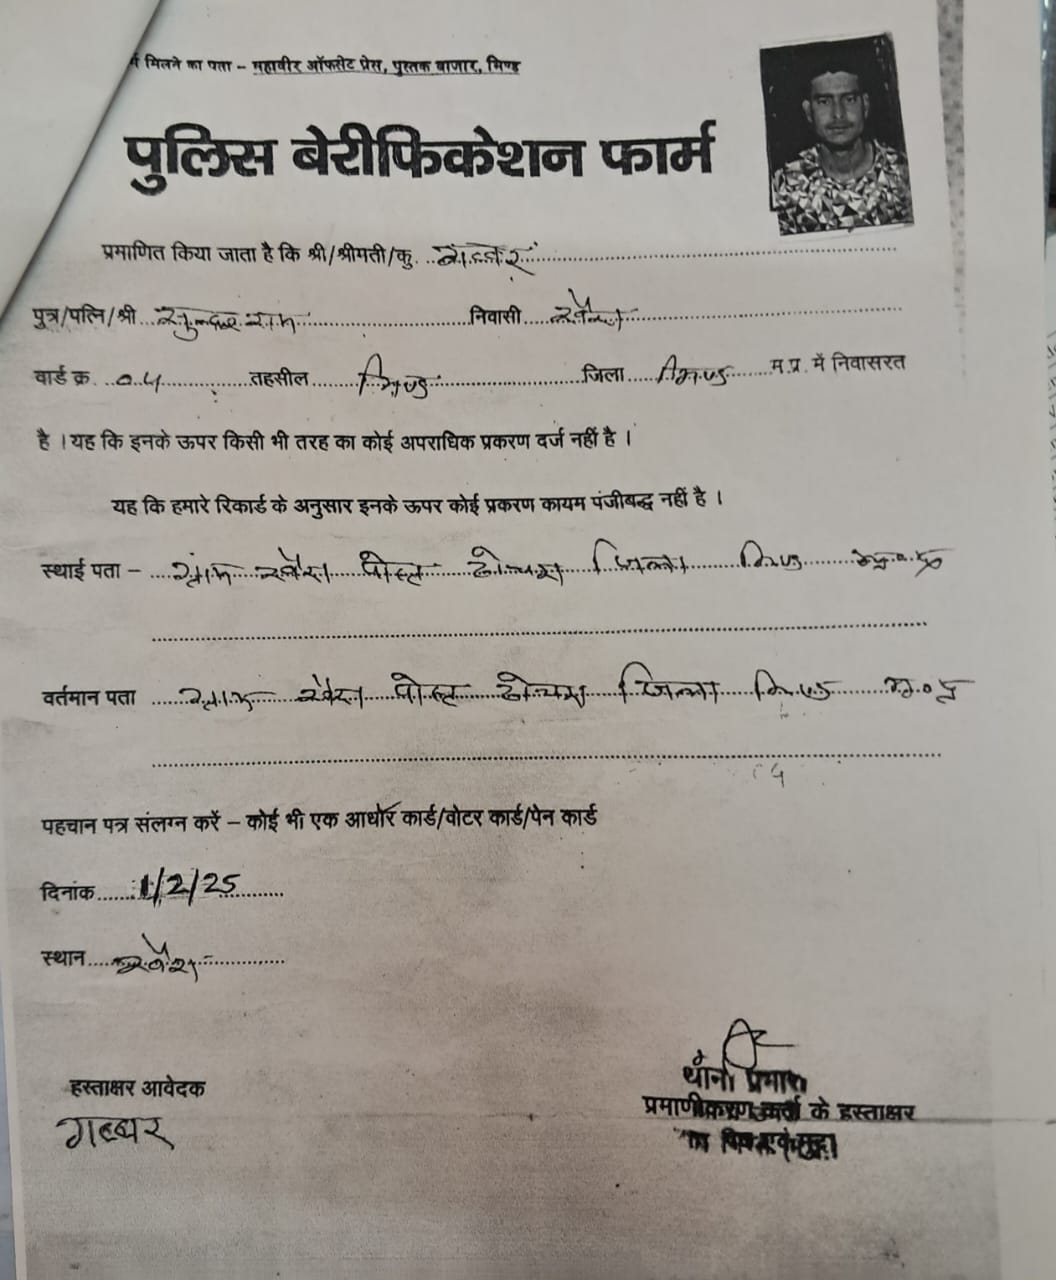 मिलने का पता – महावीर ऑफसेट प्रेस, पुस्तक बाजार, भिण्ड
पुलिस बेरीफिकेशन फार्म
प्रमाणित किया जाता है कि श्री/श्रीमती/कु. गब्बर
पुत्र/पत्नि/श्री सुन्दर राम निवासी
वार्ड क्र. 04 तहसील भिण्ड जिला भिण्ड म.प्र. में निवासरत
है । यह कि इनके ऊपर किसी भी तरह का कोई अपराधिक प्रकरण दर्ज नहीं है ।
यह कि हमारे रिकार्ड के अनुसार इनके ऊपर कोई प्रकरण कायम पंजीबद्ध नहीं है ।
स्थाई पता – ग्राम पोस्ट जिला भिण्ड म.प्र.
वर्तमान पता ग्राम पोस्ट जिला भिण्ड म.प्र.
पहचान पत्र संलग्न करें – कोई भी एक आधार कार्ड/वोटर कार्ड/पेन कार्ड
दिनांक 1/2/25
स्थान
हस्ताक्षर आवेदक
गब्बर
थाना प्रभारी
प्रमाणीकरण कर्ता के हस्ताक्षर